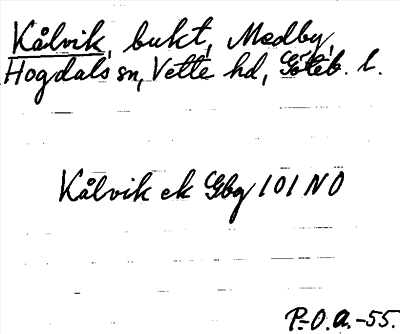 Kålvik, bukt, Medby,
Hogdals sn, Vette hd, Göteb. l.
Kålvik ek Gbg 101 NO
P.-O.A.-55.